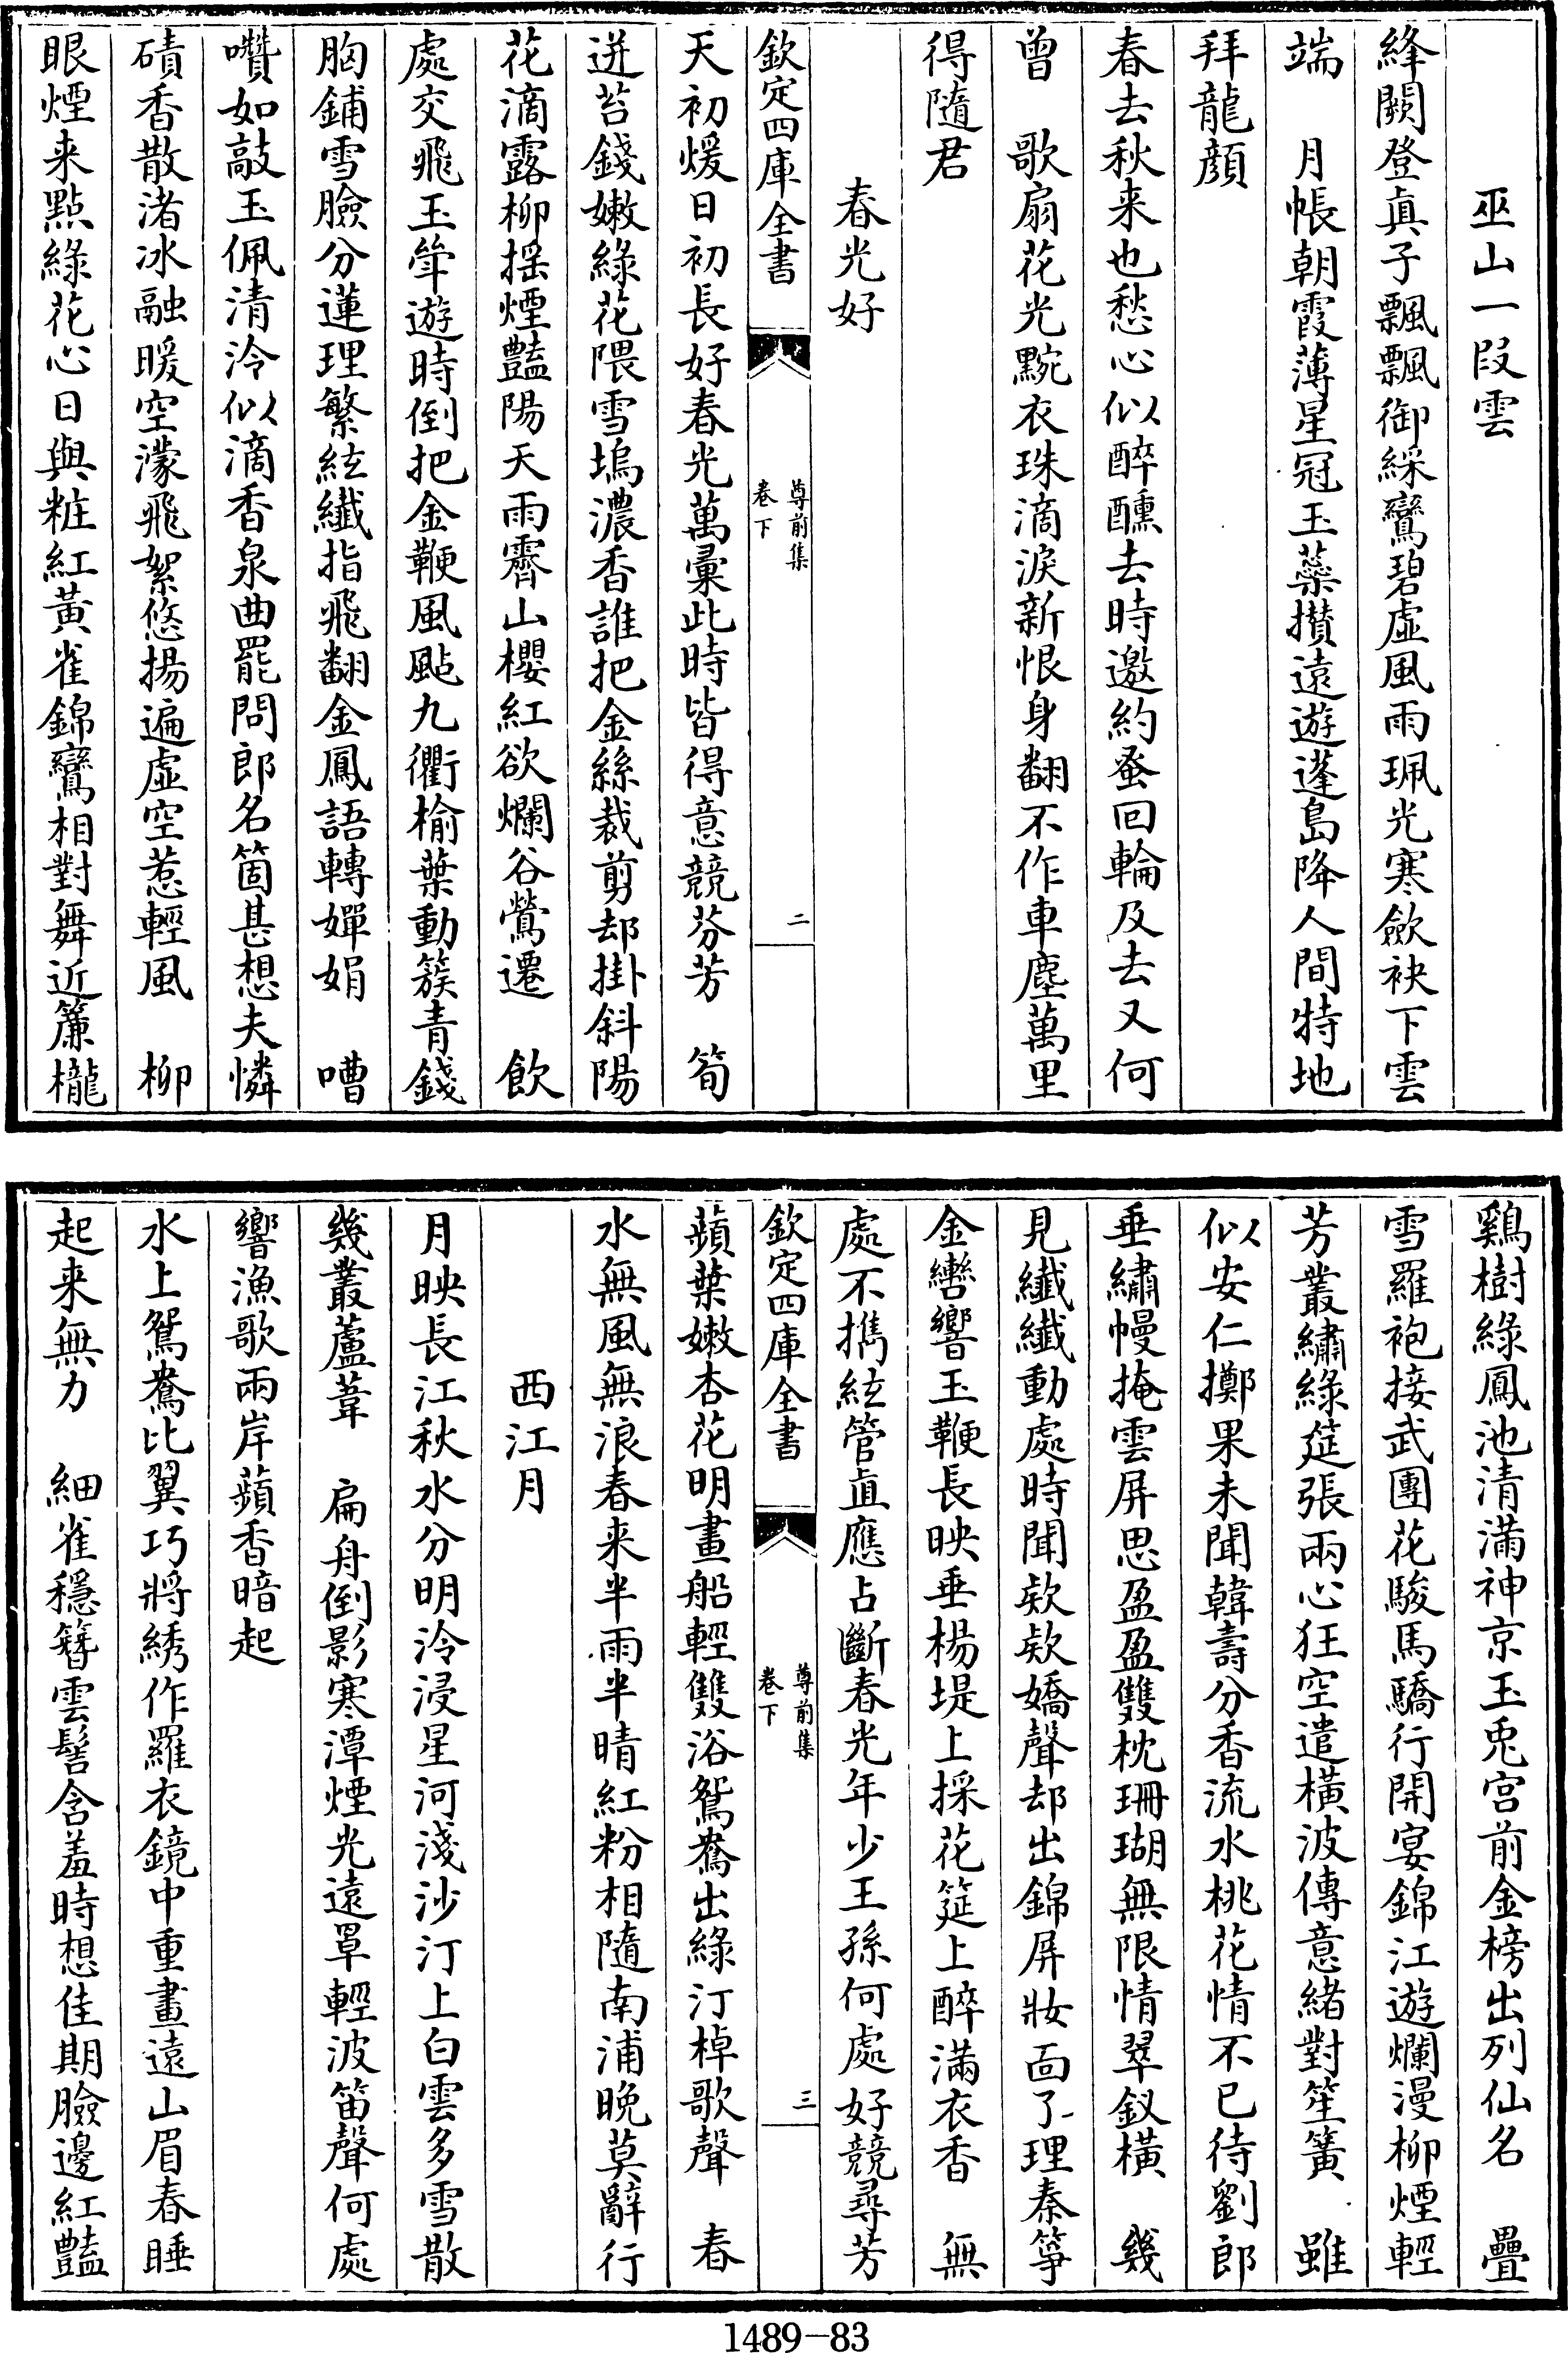 巫山一段雲
絳闕登眞子飄飄御綵鸞碧虛風雨珮光寒歛袂下雲
端　月帳朝霞薄星冠玉蘂攢遠遊蓬島降人間特地
拜龍顔
春去秋来也愁心似醉醺去時邀約蚤回輪及去又何
曾　歌扇花光黦衣珠滴淚新恨身翻不作車塵萬里
得隨君
春光好
欽定四庫全書　尊前集卷下　二
天初煖日初長好春光萬彚此時皆得意競芬芳　筍
迸苔錢嫩綠花隈雪塢濃香誰把金絲裁剪却掛斜陽
花滴露柳揺煙豔陽天雨霽山櫻紅欲爛谷鶯遷　飲
處交飛玉斝遊時倒把金鞭風颭九衢榆葉動簇青錢
胸鋪雪臉分蓮理繁絃纎指飛翻金鳳語轉嬋娟　嘈
囋如敲玉佩清泠似滴香泉曲罷問郎名箇甚想夫憐
磧香散渚冰融暖空濛飛絮悠揚遍虛空惹輕風　柳
眼煙来點綠花心日與粧紅黃雀錦鸞相對舞近簾櫳
鷄樹綠鳳池清滿神京玉兎宮前金榜出列仙名　疊
雪羅袍接武團花駿馬驕行開宴錦江遊爛漫柳煙輕
芳叢繡綠筵張兩心狂空遣橫波傳意緒對笙簧　雖
似安仁擲果未聞韓壽分香流水桃花情不已待劉郎
垂繡幔掩雲屏思盈盈雙枕珊瑚無限情翠釵橫　幾
見纎纎動處時聞欵欵嬌聲却出錦屏妝面了理秦箏
金轡響玉鞭長映垂楊堤上採花筵上醉滿衣香　無
處不擕絃管直應占斷春光年少王孫何處好競尋芳
欽定四庫全書　尊前集卷下　三
蘋葉嫩杏花明畫船輕雙浴鴛鴦出綠汀棹歌聲　春
水無風無浪春来半雨半晴紅粉相隨南浦晚莫辭行
西江月
月映長江秋水分明泠浸星河淺沙汀上白雲多雪散
幾叢蘆葦　扁舟倒影寒潭煙光遠罩輕波笛聲何處
響漁歌兩岸蘋香暗起
水上鴛鴦比翼巧將綉作羅衣鏡中重畫遠山眉春睡
起来無力　細雀穩簪雲髻含羞時想佳期臉邊紅豔
1489-83